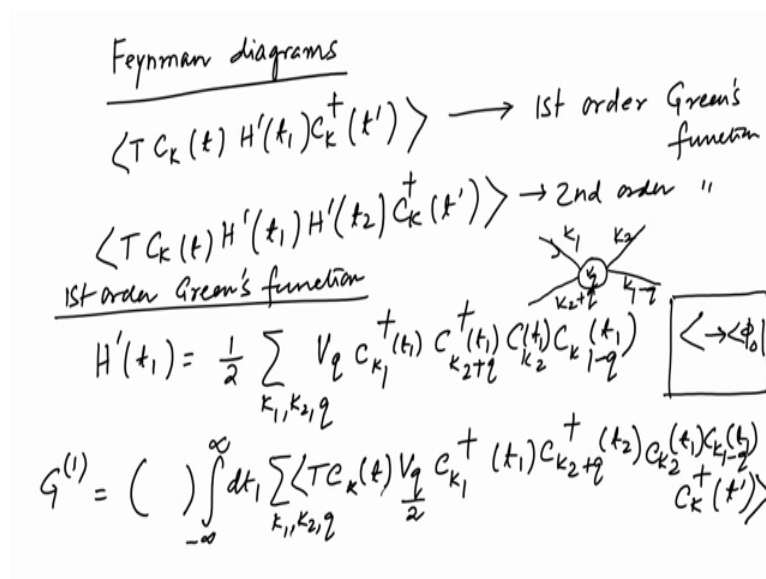 Feynman diagrams
⟨T C_k(t) H'(t_1) C_k^†(t')⟩ → 1st order Green's function
⟨T C_k(t) H'(t_1) H'(t_2) C_k^†(t')⟩ → 2nd order "
k_1 k_2
V_q
k_2+q k_1-q
1st order Green's function
H'(t_1) = 1/2 Σ_{k_1,k_2,q} V_q C_{k_1}^†(t_1) C_{k_2+q}^†(t_1) C_{k_2}(t_1) C_{k_1-q}(t_1)
⟨ → ⟨φ_0|
G^{(1)} = ( ) ∫_{-∞}^{∞} dt_1 Σ_{k_1,k_2,q} ⟨T C_k(t) V_q/2 C_{k_1}^†(t_1) C_{k_2+q}^†(t_2) C_{k_2}(t_1) C_{k_1-q}(t_1)
C_k^†(t')⟩